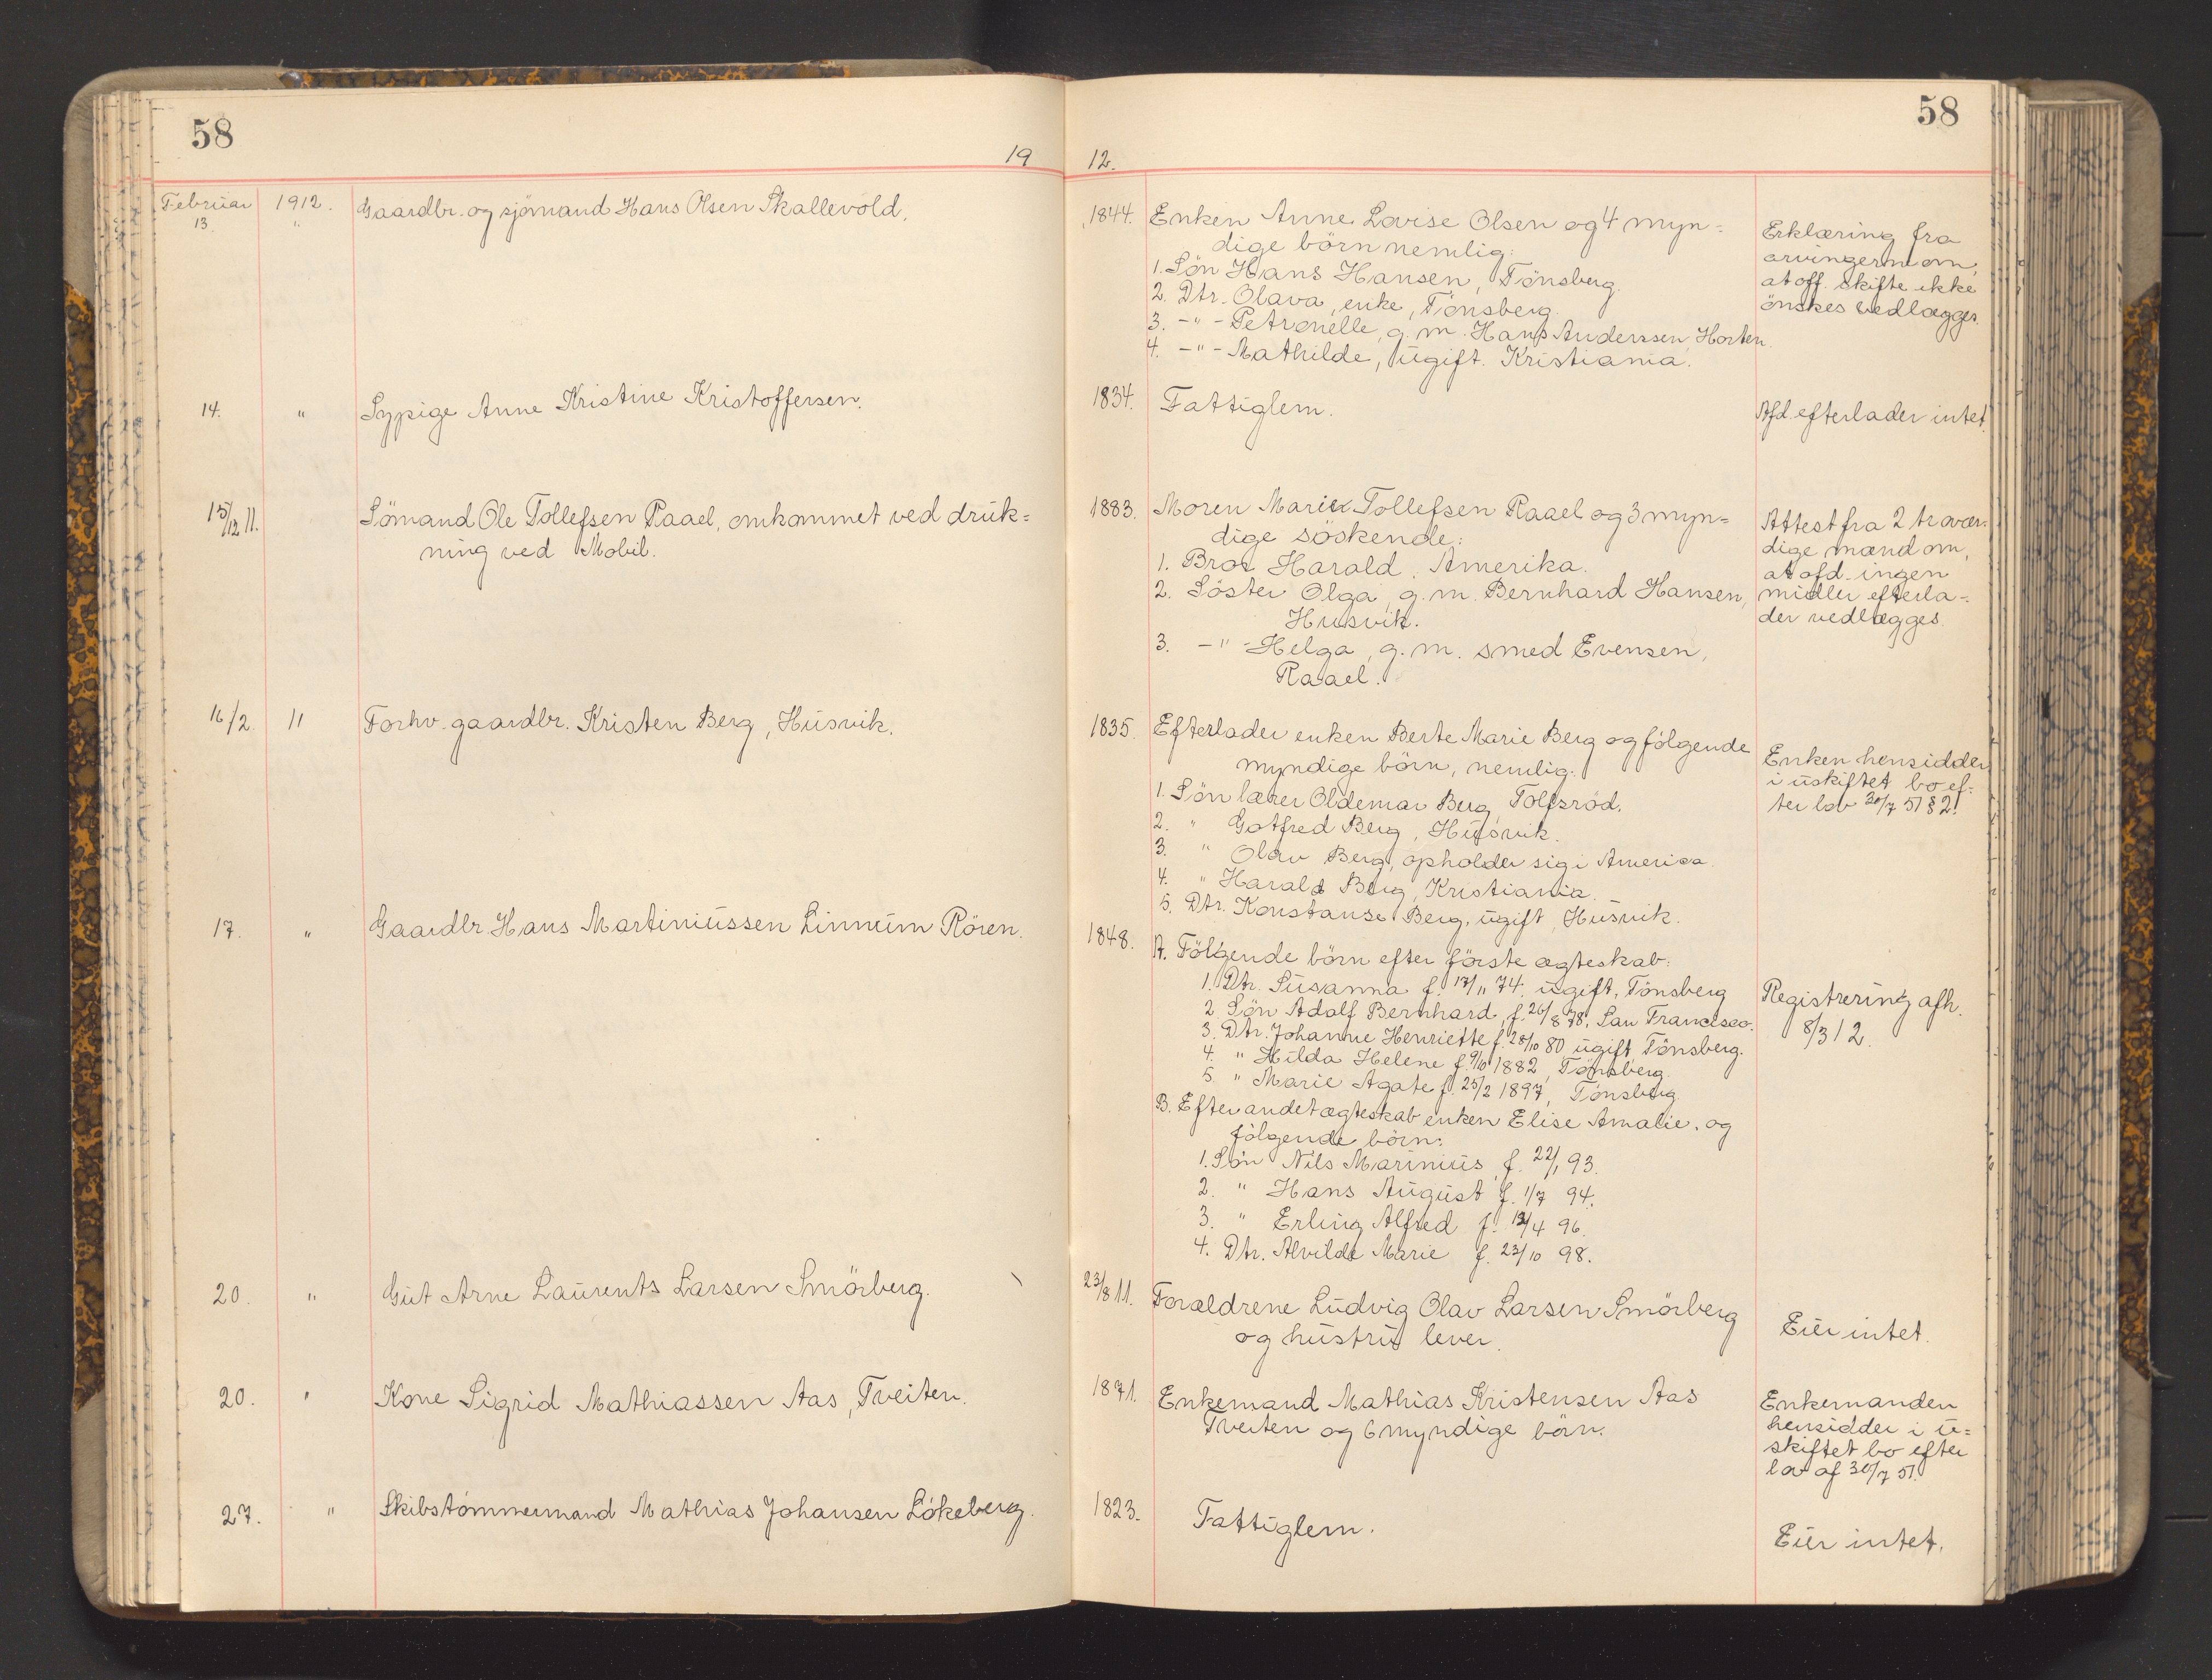 58
58
19 12.
Februar 1912.
13. " Gaardbr. og sjömand Hans Olsen Skallevold.
1844. Enken Anne Lovise Olsen og 4 myn=
dige börn nemlig:
1. Sön Hans Hansen, Tönsberg.
2. Dtr. Olava, enke, Tönsberg.
3. -"- Petronelle, g. m. Hans Anderssen, Horten.
4. -"- Mathilde, ugift. Kristiania.
Erklæring fra
arvingerne om,
at off. skifte ikke
önskes vedlægges.
14. " Sypige Anne Kristine Kristoffersen.
1834. Fattiglem.
Afd. efterlader intet.
15/12 11. Sömand Ole Tollefsen Raael, omkommet ved druk=
ning ved Mobil.
1883. Moren Marie Tollefsen Raael og 3 myn=
dige söskende:
1. Bror Harald. Amerika.
2. Söster Olga, g. m. Bernhard Hansen,
Husvik.
3. -"- Helga, g. m. smed Evensen,
Raael.
Attest fra 2 trovær-
dige mænd om,
at afd. ingen
midler efterla-
der vedlægges.
16/2. 11 Forhv. gaardbr. Kristen Berg, Husvik.
1835. Efterlader enken Berte Marie Berg og fölgende
myndige börn, nemlig:
1. Sön lærer Oldemar Berg, Tolfsröd.
2. " Gotfred Berg, Husvik.
3. " Olav Berg, opholder sig i America.
4. " Harald Berg, Kristiania.
5. Dtr. Konstanse Berg, ugift, Husvik.
Enken hensidder
i uskiftet bo ef-
ter lov 30/7 51 § 2.
17. " Gaardbr. Hans Martiniussen Linnum Rören.
1848. A. Fölgende börn efter förste ægteskab:
1. Dtr. Susanna f. 17/11 74. ugift, Tönsberg
2. Sön Adolf Bernhard, f. 26/8 78, San Francisco.
3. Dtr. Johanne Henriette f. 28/10 80 ugift, Tönsberg.
4. " Hilda Helene f. 9/10 1882, Tönsberg
5. " Marie Agate f. 25/2 1897, Tönsberg.
B. Efter andet ægteskab enken Elise Amalie, og
fölgende börn:
1. Sön Nils Marinius, f. 22/1 93.
2. " Hans August f. 1/7 94.
3. " Erling Alfred f. /4 96.
4. Dtr. Alvilde Marie f. 23/10 98.
Registrering afh.
8/3 12.
20. " Gut Arne Laurents Larsen Smörberg.
23/8 11. Forældrene Ludvig Olav Larsen Smörberg
og hustru lever.
Eier intet.
20. " Kone Sigrid Mathiassen Aas, Tveiten.
1871. Enkemand Mathias Kristensen Aas
Tveiten og 6 myndige börn.
Enkemanden
hensidder i u=
skiftet bo efter
lov af 30/7 51.
27. " Skibstömmermand Mathias Johansen Lökeberg.
1823. Fattiglem.
Eier intet.